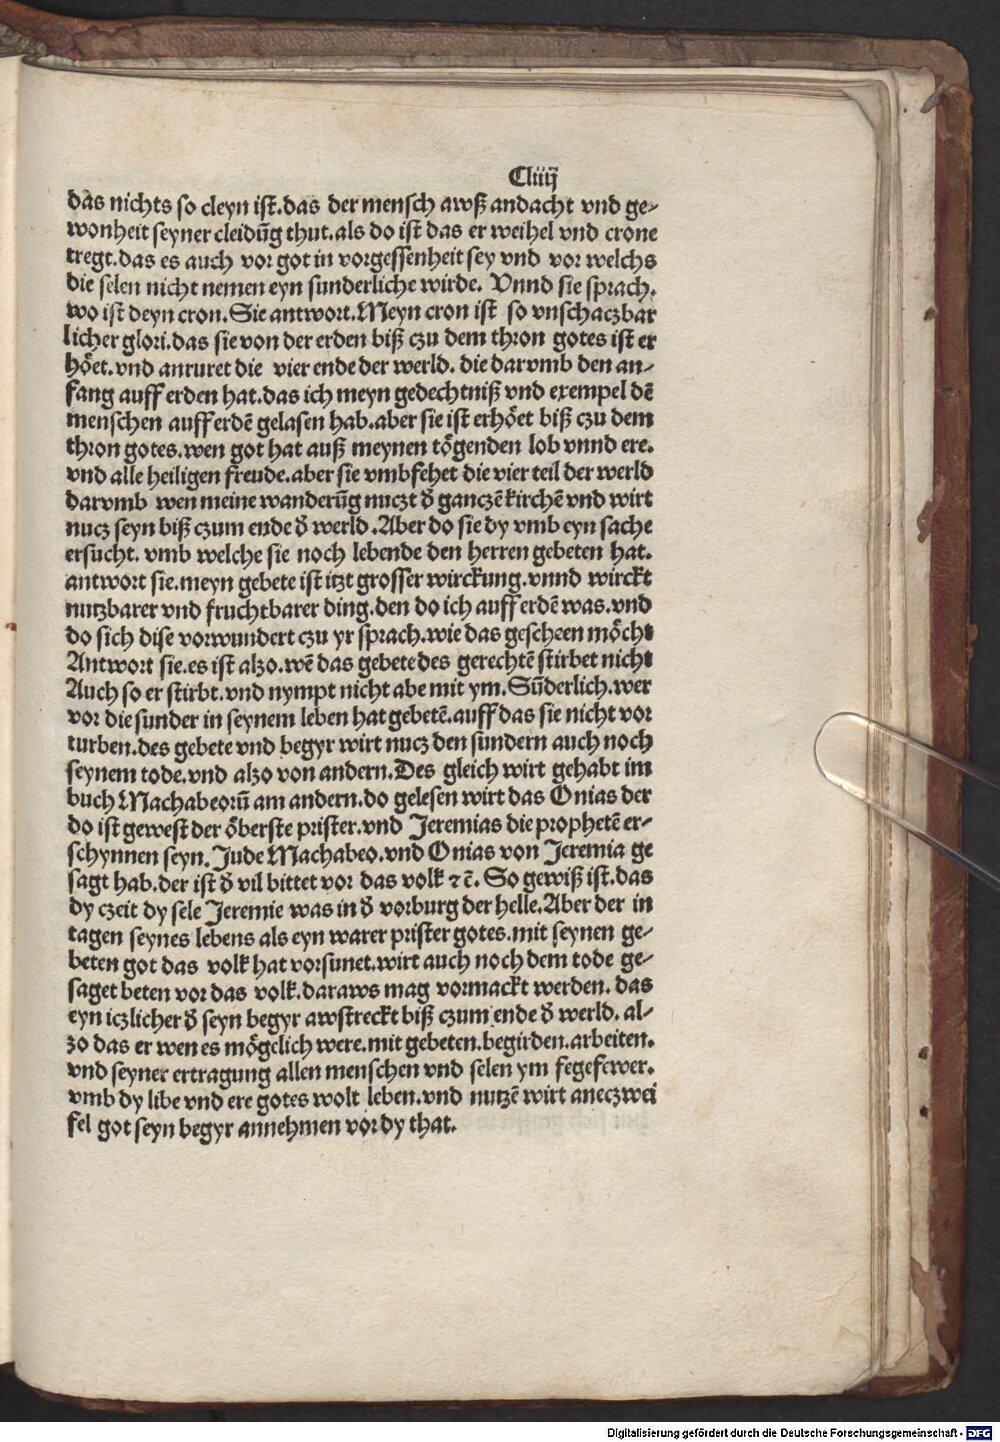 Cliiij
das nichts so cleyn ist.das der mensch awß andacht vnd ge⸗
wonheit seyner cleidũg thut.als do ist das er weihel vnd crone
tregt.das es auch vor got in vorgessenheit sey vnd vor welchs
die selen nicht nemen eyn sunderliche wirde. Vnnd sie sprach.
wo ist deyn cron.Sie antwort.Meyn cron ist so vnschaczbar
licher glori.das sie von der erden biß czu dem thron gotes ist er
höet.vnd anruret die vier ende der werld. die darvmb den an⸗
fang auff erden hat.das ich meyn gedechtniß vnd exempel dē
menschen auff erdē gelasen hab.aber sie ist erhöet biß czu dem
thron gotes.wen got hat auß meynen tögenden lob vnnd ere.
vnd alle heiligen freude.aber sie vmbfehet die vier teil der werld
darvmb wen meine wanderũg nuczt d̕ ganczē kirchē vnd wirt
nucz seyn biß czum ende d̕ werld.Aber do sie dy vmb eyn sache
ersucht. vmb welche sie noch lebende den herren gebeten hat.
antwort sie.meyn gebete ist itzt grosser wirckung.vnnd wirckt
nutzbarer vnd fruchtbarer ding.den do ich auff erdē was.vnd
do sich dise vorwundert czu yr sprach.wie das gescheen möcht
Antwort sie.es ist alzo.wē das gebete des gerechtē stirbet nicht
Auch so er stirbt.vnd nympt nicht abe mit ym.Sũderlich.wer
vor die sunder in seynem leben hat gebetē.auff das sie nicht vor
turben.des gebete vnd begyr wirt nucz den sundern auch noch
seynem tode.vnd alzo von andern.Des gleich wirt gehabt im
buch Machabeorũ am andern.do gelesen wirt das Onias der
do ist gewest der öberste prister.vnd Jeremias die prophetē er⸗
schynnen seyn. Jude Machabeo.vnd Onias von Jeremia ge
sagt hab.der ist d̕ vil bittet vor das volk ⁊c̄. So gewiß ist.das
dy czeit dy sele Jeremie was in d̕ vorburg der helle.Aber der in
tagen seynes lebens als eyn warer prister gotes.mit seynen ge⸗
beten got das volk hat vorsunet.wirt auch noch dem tode ge⸗
saget beten vor das volk.daraws mag vormackt werden. das
eyn iczlicher d̕ seyn begyr awstreckt biß czum ende d̕ werld. al⸗
zo das er wen es mögelich were.mit gebeten.begirden.arbeiten.
vnd seyner ertragung allen menschen vnd selen ym fegefewer.
vmb dy libe vnd ere gotes wolt leben.vnd nutzē wirt ane czwei
fel got seyn begyr annehmen vor dy that.
Digitalisierung gefördert durch die Deutsche Forschungsgemeinschaft - DFG